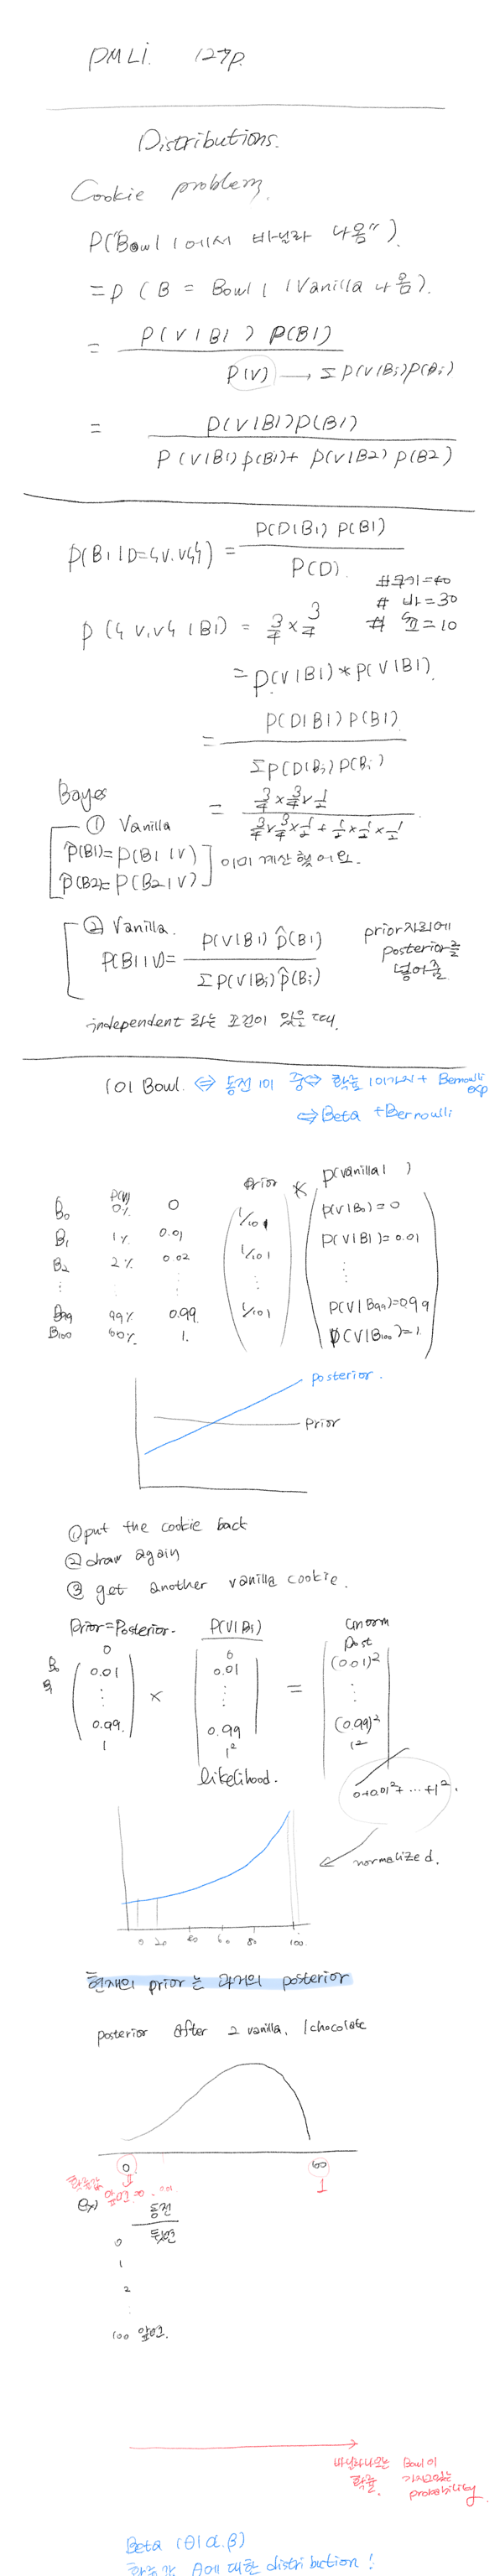 PMLI. 127p.
Distributions.
Cookie problem.
P("Bowl 1에서 바닐라 나옴")
= P (B = Bowl 1 | Vanilla 나옴).
= P(V|B1) P(B1)
P(V) → Σ P(V|Bi)P(Bi)
= P(V|B1)P(B1)
P(V|B1)P(B1) + P(V|B2) P(B2)
P(B1|D={V,V}) = P(D|B1) P(B1)
P(D).
#쿠키=40
# 바=30
# 초=10
P({V,V}|B1) = 3/4 × 3/4
= P(V|B1) * P(V|B1)
= P(D|B1) P(B1)
ΣP(D|Bi) P(Bi)
= 3/4 × 3/4 × 1/2
3/4 × 3/4 × 1/2 + 1/2 × 1/2 × 1/2
Bayes
① Vanilla
P̂(B1) = P(B1|V)
P̂(B2) = P(B2|V)
이미 계산했어요.
② Vanilla.
P(B1|V) = P(V|B1) P̂(B1)
ΣP(V|Bi) P̂(Bi)
prior자리에
posterior를
넣어줌
independent 라는 조건이 있을 때.
101 Bowl. ⇔ 동전 101 중 ⇔ 확률 101가지 + Bernoulli exp
⇔ Beta + Bernoulli
P(V) prior * P(vanilla| )
B0 0% 0 1/101 P(V|B0) = 0
B1 1% 0.01 1/101 P(V|B1) = 0.01
B2 2% 0.02
B99 99% 0.99 1/101 P(V|B99)=0.99
B100 1. P(V|B100)=1.
posterior.
prior
① put the cookie back
② draw again
③ get another vanilla cookie.
Prior=Posterior. P(V|Bi) unorm post
B0 0 0
B1 0.01 × 0.01 = (0.01)²
0.99 0.99 (0.99)²
1 1² 1²
likelihood.
0+0.01²+ ··· +1².
normalized.
0 20 40 60 80 100.
현재의 prior는 과거의 posterior
posterior after 2 vanilla, 1 chocolate
0
1
ex) 동전
0 뒷면
1
2
100 앞면.
바닐라나오는 확률.
Bowl이 가지고있는 probability
Beta (θ|α.β)
확률값 θ에 대한 distribution!